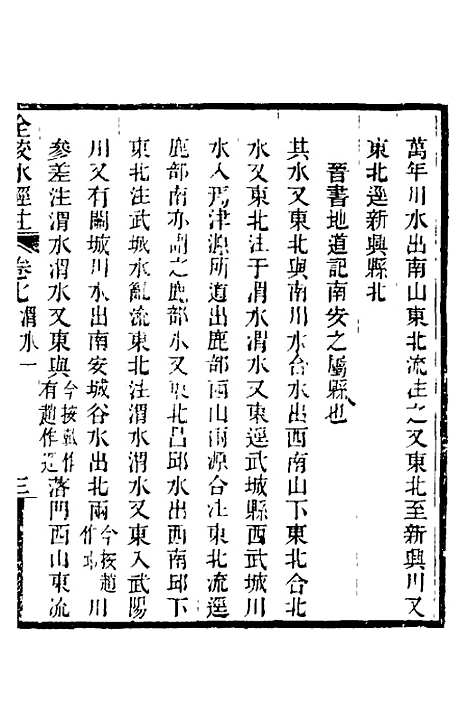 萬年川水出南山東北流注之又東北至新興川又
東北逕新興縣北
晉書地道記南安之屬縣也
其水又東北與南川水合水出西南山下東北合北
水又東北注于渭水渭水又東逕武城縣西武城川
水入焉津源所導出鹿部西山兩源合注東北流逕
鹿部南亦謂之鹿部水又東北昌邱水出西南邱下
東北注武城水亂流東北注渭水渭水又東入武陽
川又有關城川水出南安城谷水出北兩今按趙作川
參差注渭水渭水又東與今按戴作有趙作逕落門西山東流
全校水經注 卷七 渭水一 三